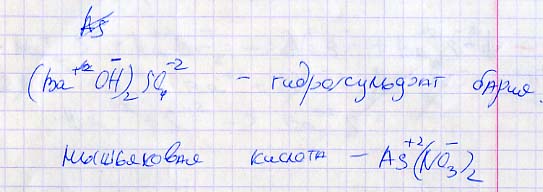 (Ba⁺²OH⁻)₂SO₄⁻² – гидросульфат бария.
Мышьяковая кислота – As⁺²(NO₃⁻)₂